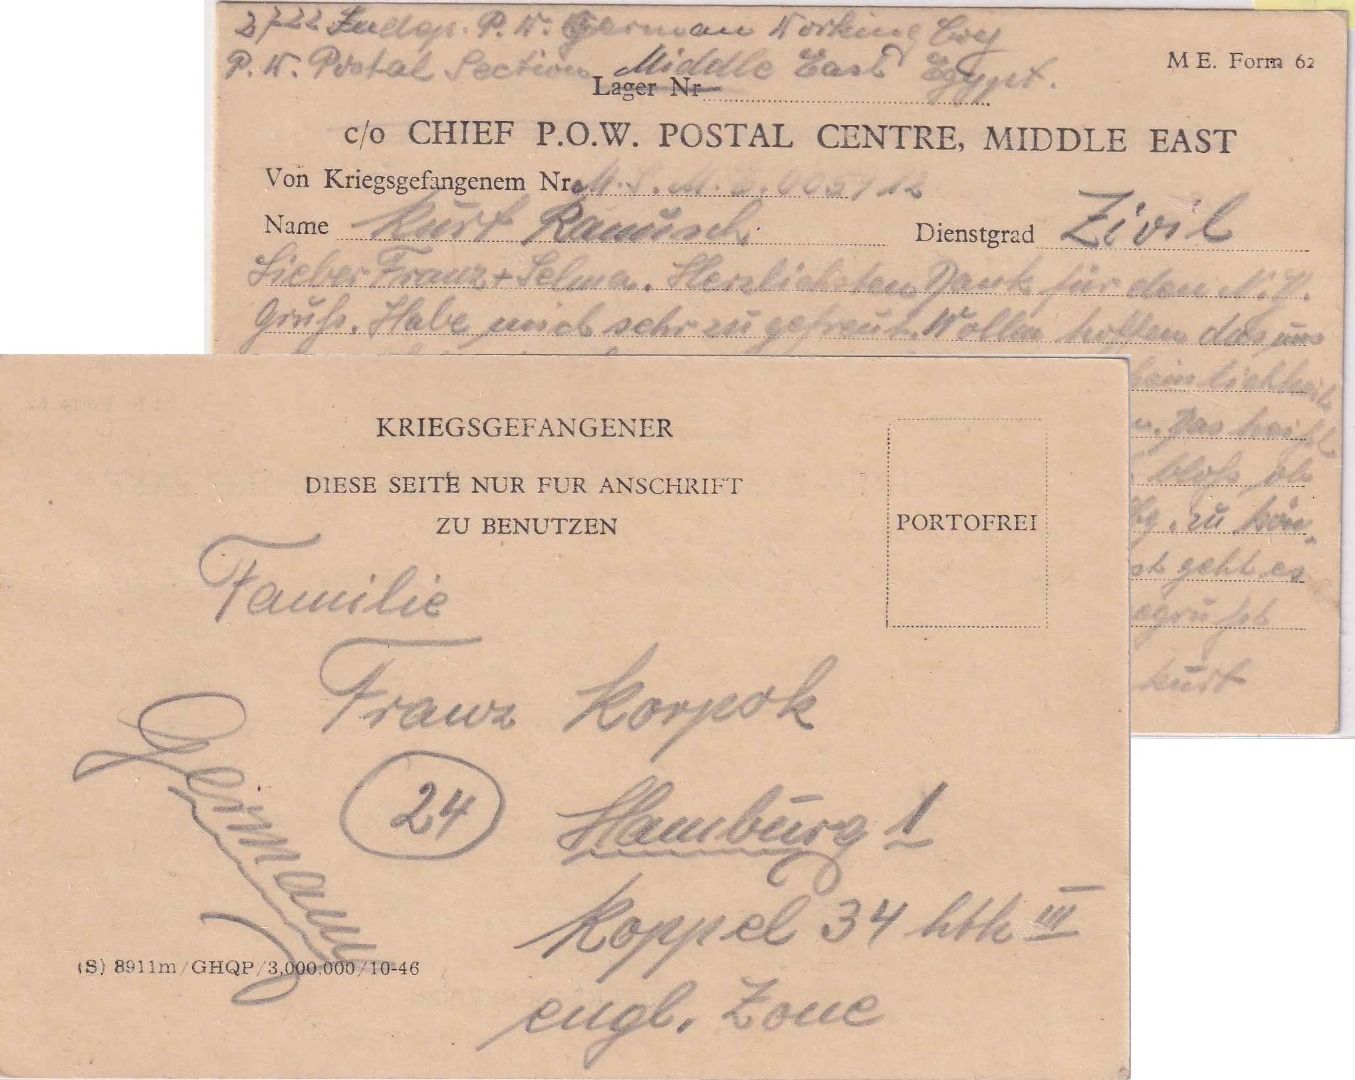 2722 Indep. P.W. German Working Coy
P.W. Postal Section Middle East Egypt.
M E. Form 62
Lager Nr
c/o CHIEF P.O.W. POSTAL CENTRE, MIDDLE EAST
Von Kriegsgefangenem Nr. M.S.M.E.
Name Kurt Ranusch Dienstgrad Zivil
Lieber Franz + Selma. Herzlichsten Dank für den N.J.
Gruß. Habe mich sehr zu gefreut. Wollen hoffen das uns
lichkeit
Das heißt
bloß ob
Hbg. zu kön-
geht es
gegrüßt
Kurt
KRIEGSGEFANGENER
DIESE SEITE NUR FUR ANSCHRIFT
ZU BENUTZEN
PORTOFREI
Familie
Franz Korpok
24 Hamburg 1
Koppel 34 hth III
engl. Zone
Germany
(S) 8911m/GHQP/3,000,000/10-46